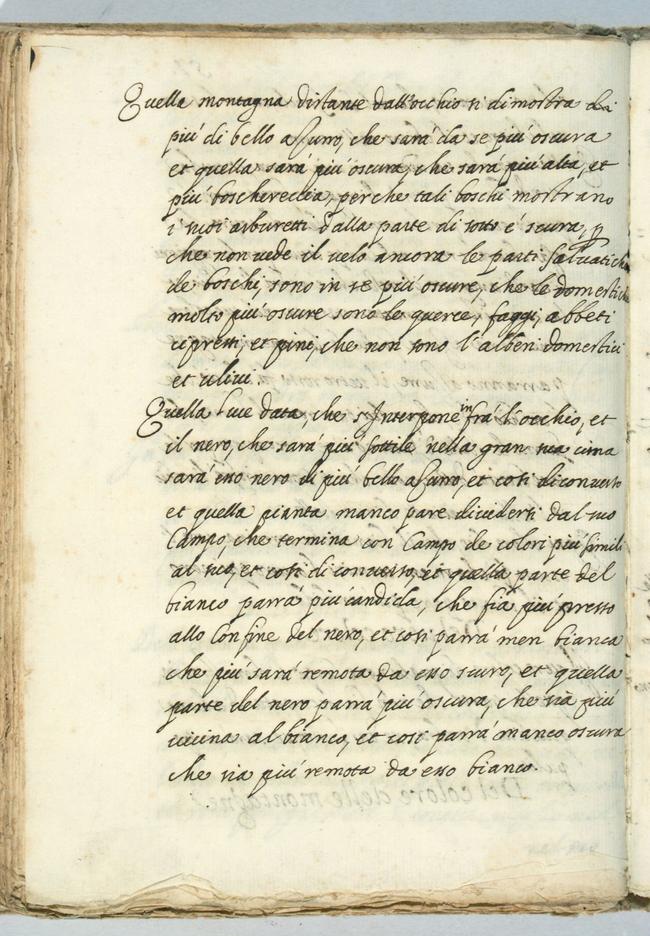 Quella montagna distante dall'occhio si dimostra di
più di bello assurro, che sarà da se più oscura
et quella sarà più oscura, che sarà più alta, et
più boschereccia, perche tali boschi mostrano
i suoi arburetti dalla parte di sotto é scura, p
che non vede il velo ancora le parti salvatiche
de boschi, sono in se più oscure, che le domestiche
molto più oscure sono le querce, faggi, abbeti
cipressi, et pini, che non sono l'alberi domestici
et ulivi.
Quella luce data, che s'Interpone in frà l'occhio, et
il nero, che sarà più sottile nella gran sua cima
sarà esso nero di più bello assurro, et così diconverso
et quella pianta manco pare dividersi dal suo
Campo, che termina con Campo de colori più simili
al suo, et così di converso, et quella parte del
bianco parrà più candida, che fia più presso
allo Confine del nero, et così parrà men bianca
che più sarà remota da esso scuro, et quella
parte del nero parrà più oscura, che sia più
vicina al bianco, et così parrà manco oscura
che sia più remota da esso bianco.